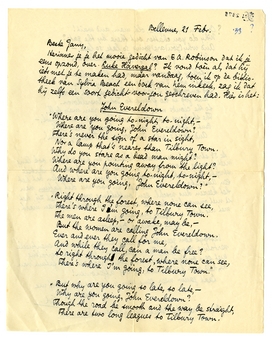 Bellevue, 21 Febr.
Beste Gany,
Herinner je je het mooie gedicht van E.A. Robinson dat ik je
eens opzond, over Luke Havergal? Ik vond toen al, dat
iets met je te maken had maar vandaag, toen ik op de biblio-
theek van Sylvia Beach een boek van hem inkeek, zag ik dat
hij zelfs een soort gedicht-voor-jou geschreven had. Hier is het:
John Evereldown
"Where are you going to-night, to-night,—
Where are you going, John Evereldown?
There's never the sign of a star in sight,
Nor a lamp that's nearer than Tilbury Town.
Why do you stare as a dead man might?
Where are you pointing away from the light?
And where are you going to-night, to-night,—
Where are you going, John Evereldown?"
"Right through the forest, where none can see,
There's where I'm going, to Tilbury Town.
The men are asleep,— or awake, may be,—
But the women are calling John Evereldown.
Ever and ever they call for me,
And while they call can a man be free?
So right through the forest, where none can see,
There's where I'm going, to Tilbury Town."
"But why are you going so late, so late,—
Why are you going, John Evereldown?
Though the road be smooth and the way be straight,
There are two long leagues to Tilbury Town.